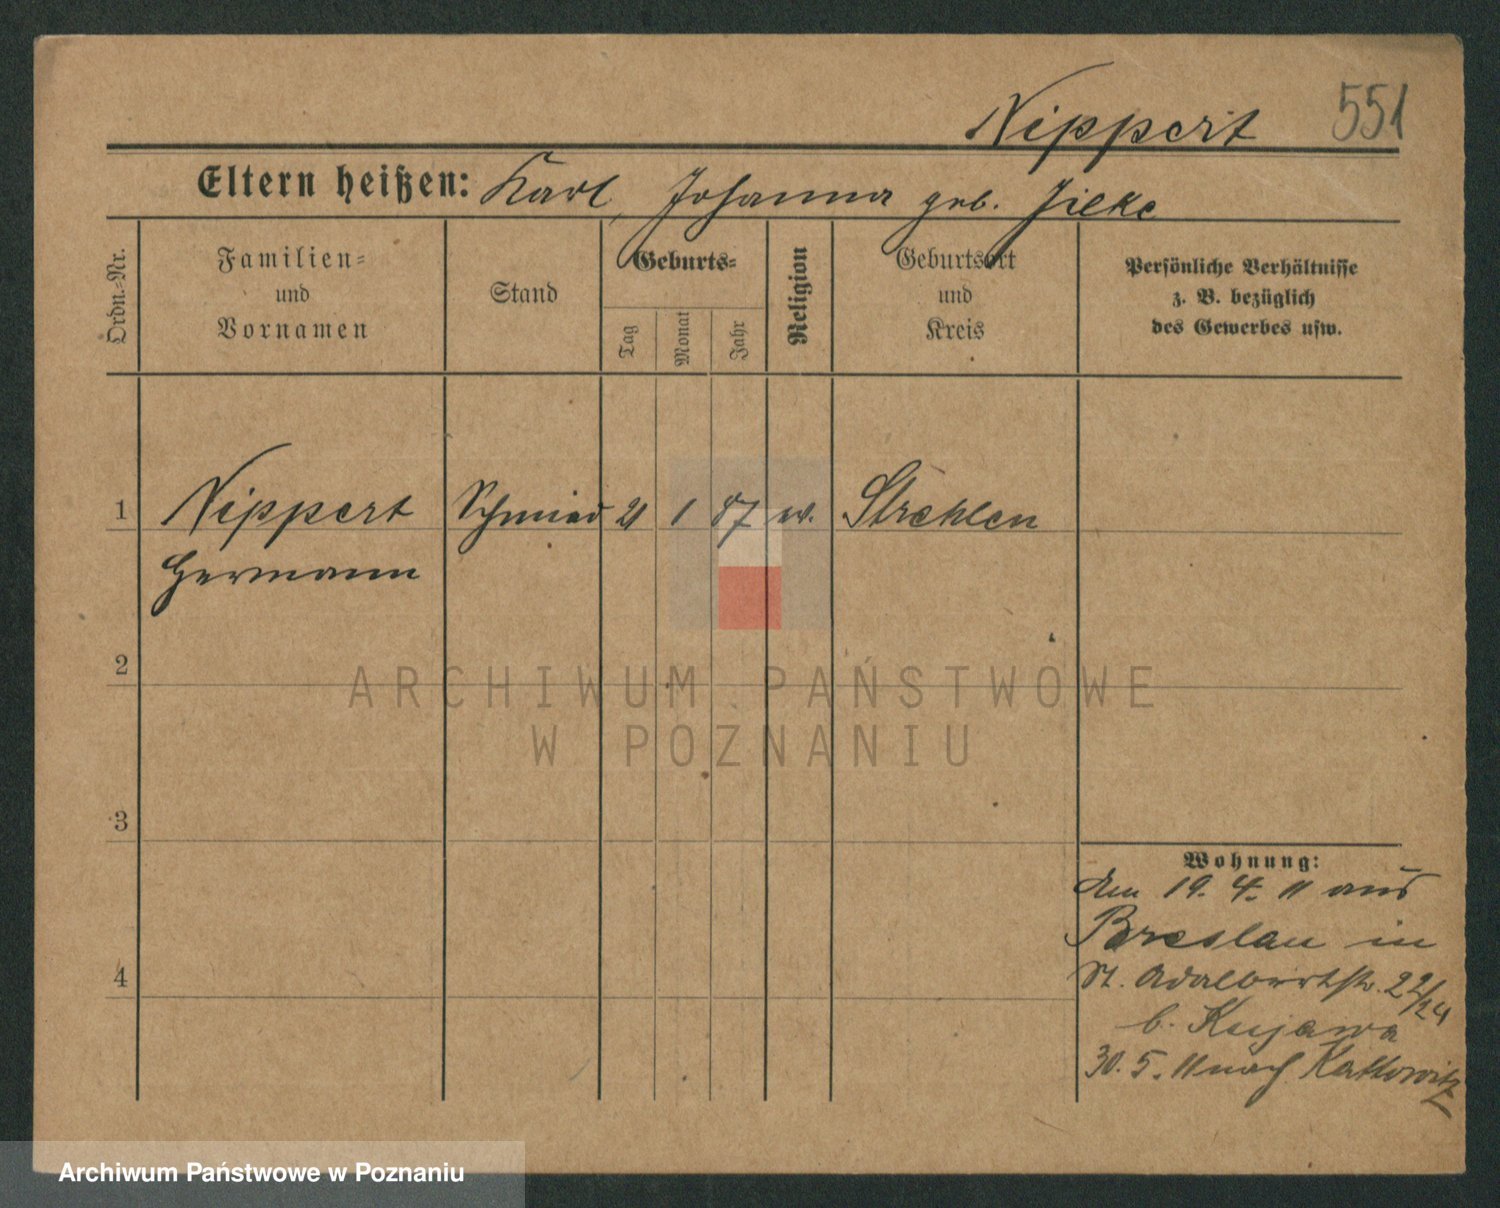 Nippert 551
Eltern heißen: Karl, Johanna geb. Jilke
Ordn.-Nr.
Familien-
und
Vornamen
Stand
Geburts-
Tag
Monat
Jahr
Religion
Geburtsort
und
Kreis
Persönliche Verhältnisse
z. B. bezüglich
des Gewerbes usw.
1 Nippert Schmied 21 1 87 ev. Strehlen
Hermann
2
ARCHIWUM PAŃSTWOWE
W POZNANIU
3
Wohnung:
Am 19. 4. 11 aus
Breslau in
4
St. Adalbertstr. 22/24
b. Kujawa
30. 5. 11 nach Kattowitz
Archiwum Państwowe w Poznaniu